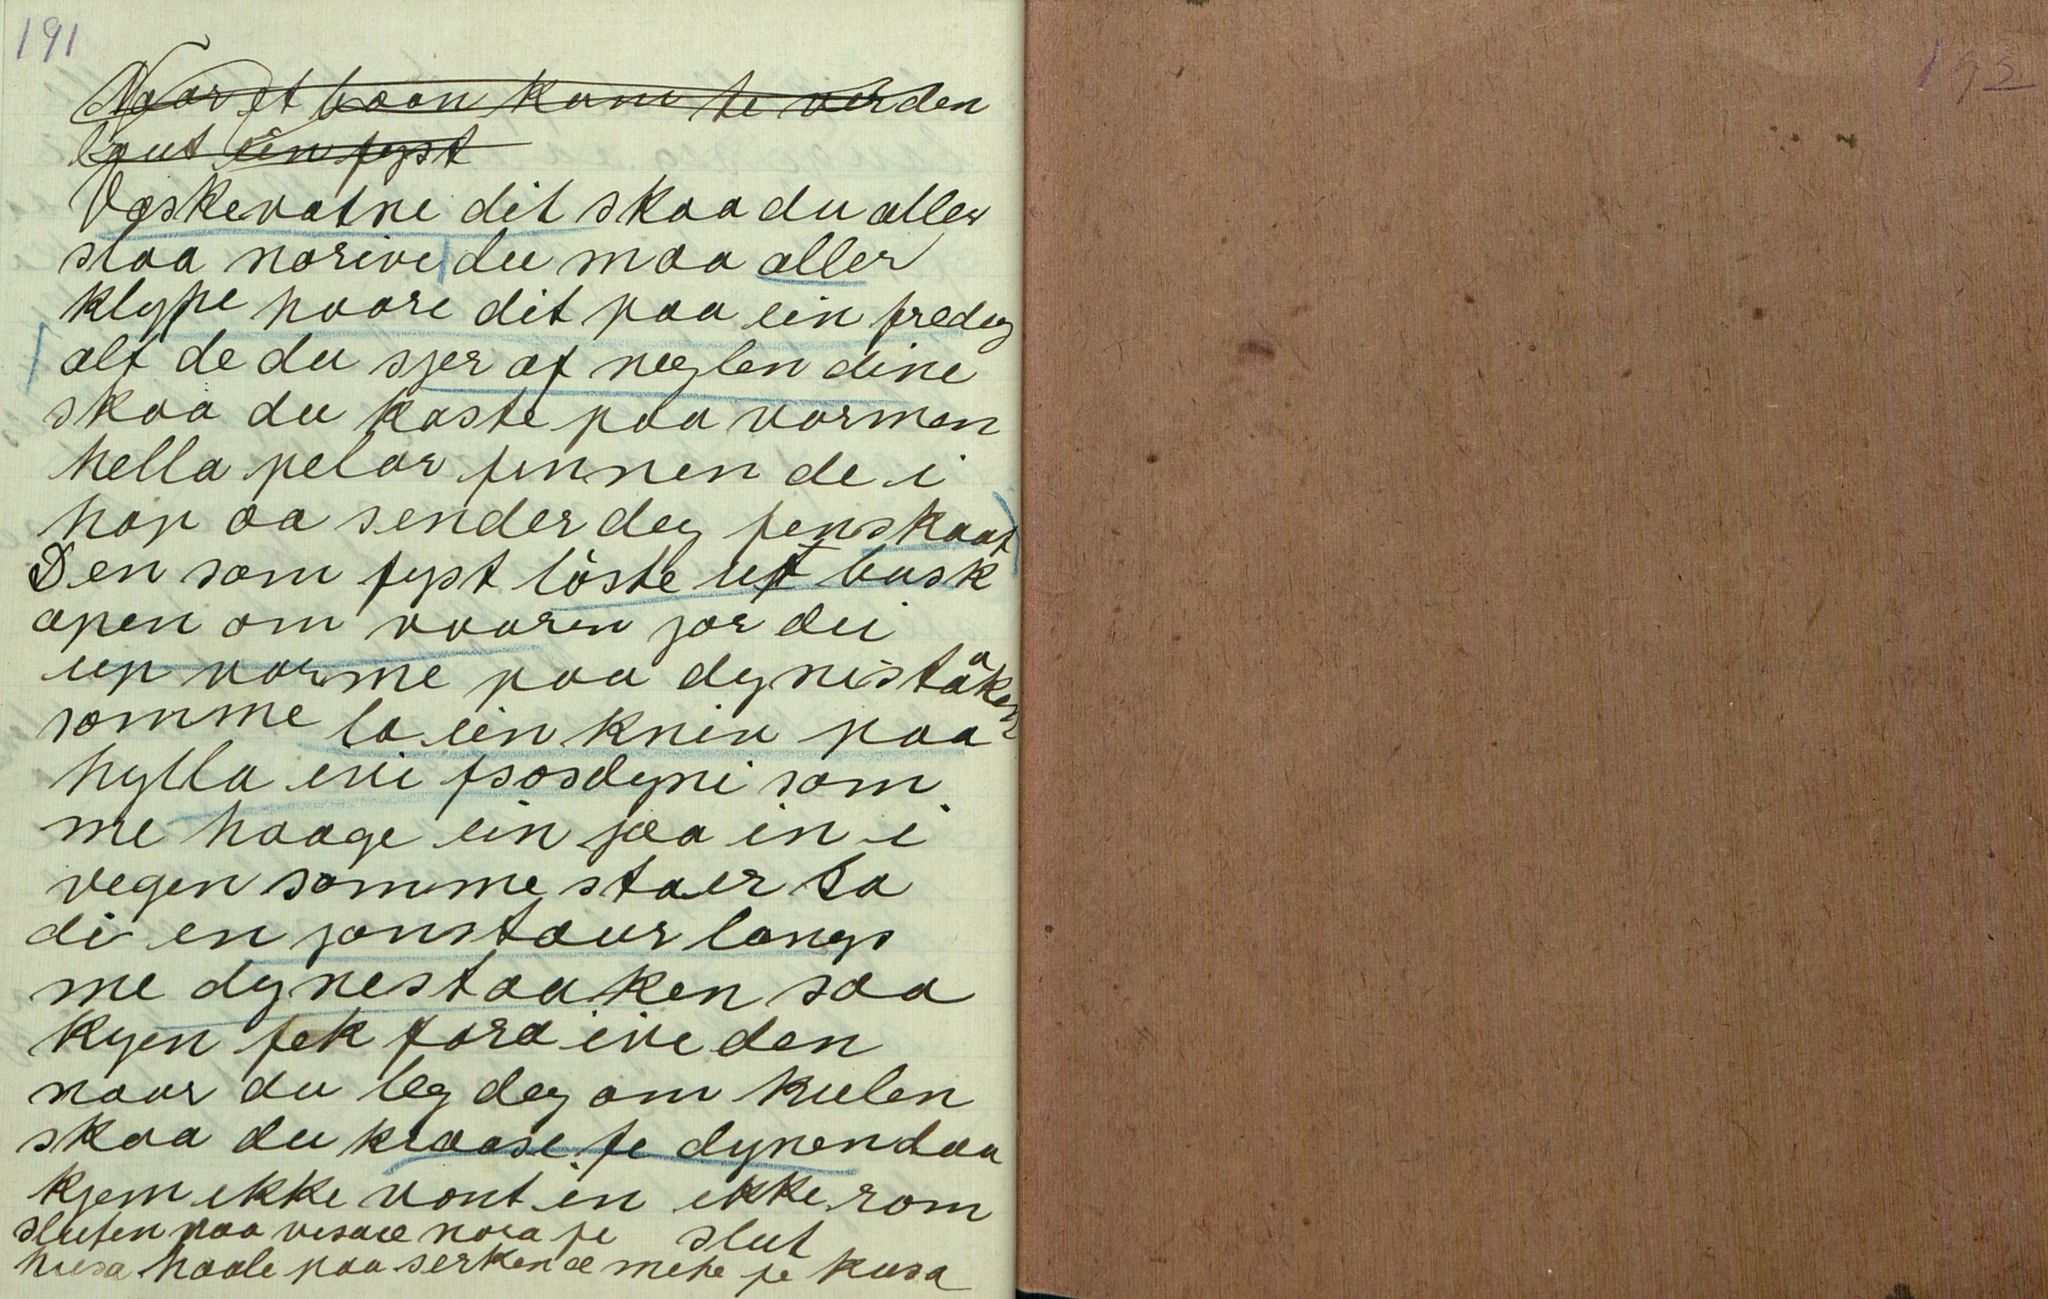 191
Naar et baan kom te verden
lout ein fyst
Vaskevatne dit skaa du aller
slaa norive du maa aller
klype haare dit paa ein fredag
alt de du sjer af neglen dine
skaa du kaste paa varmen
hella pelar finnen de i
hop aa sender deg finskaat
Den som fyst löste ut busk
apen om vaaren jor dei
up varme paa dynistaaken
somme la ein kniv paa
hylla ivi fjosdyni som
me haage ein jaa in i
vegen somme staer la
dei en jonstaur langs
me dynestaaken saa
kyen fek fara ive den
naar du leg deg om kulen
skaa du kraase fe dynen daa
kjem ikke vont in ikke rom
sluten paa visaa nora fe slut
husa haale paa serken æ mete fe kusa
192